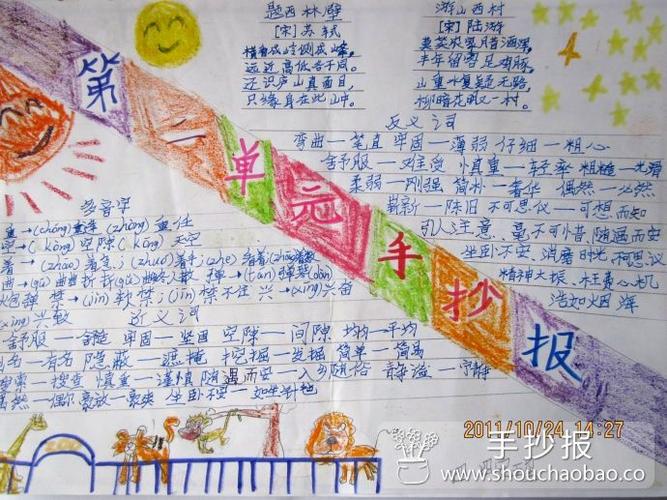 题西林壁
[宋]苏轼
横看成岭侧成峰,
远近高低各不同。
不识庐山真面目,
只缘身在此山中。
游山西村
[宋]陆游
莫笑农家腊酒浑,
丰年留客足鸡豚。
山重水复疑无路,
柳暗花明又一村。
第一单元手抄报
反义词
弯曲—笔直 牢固—薄弱 仔细—粗心
舒服—难受 慎重—轻率 粗糙—光滑
柔弱—刚强 简朴—奢华 偶然—必然
崭新—陈旧 不可思议—可想而知
引人注意、毫不可惜、随遇而安
坐卧不安、消磨时光、
精神大振、枉费心机
浩如烟海
多音字
重→(chóng)重 (zhòng)重任
空隙 (kōng)天空
着→(zháo)着急;(zhuó)着手;
(qū)曲 弹→(tán)弹
禁→(jīn) 禁;(jìn)禁 兴→(xīng)兴奋
(xìng)兴致
近义词
舒服—舒适 牢固—坚固 空隙—间隙 均匀—平均
有名 隐蔽—遮掩 挖掘—发掘 简单—简易
搜查 慎重—谨慎 随遇而安—入乡随俗 静谧—宁静
偶尔 坐卧不安—
ZOO
2011/10/24 14:27
手抄报
www.shouchaobao.co